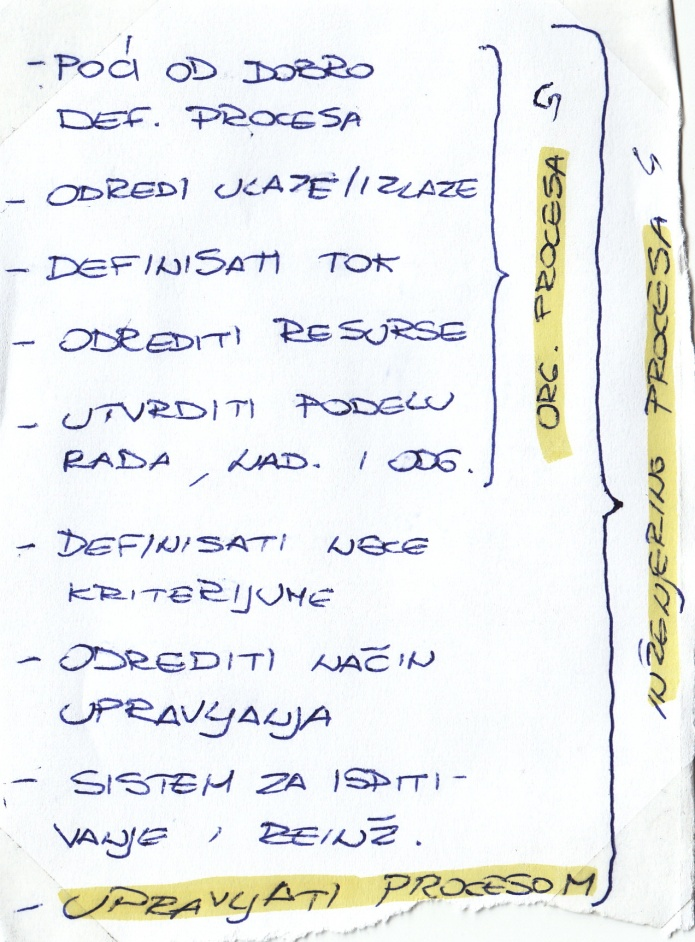 - POĆI OD DOBRO
DEF. PROCESA
- ODREDI ULAZE/IZLAZE
- DEFINISATI TOK
- ODREDITI RESURSE
- UTVRDITI PODELU
RADA, NAD. I ODG.
- DEFINISATI NEKE
KRITERIJUME
- ODREDITI NAČIN
UPRAVLJANJA
- SISTEM ZA ISPITI-
VANJE I REINŽ.
- UPRAVLJATI PROCESOM
ORG. PROCESA
INŽENJERING PROCESA